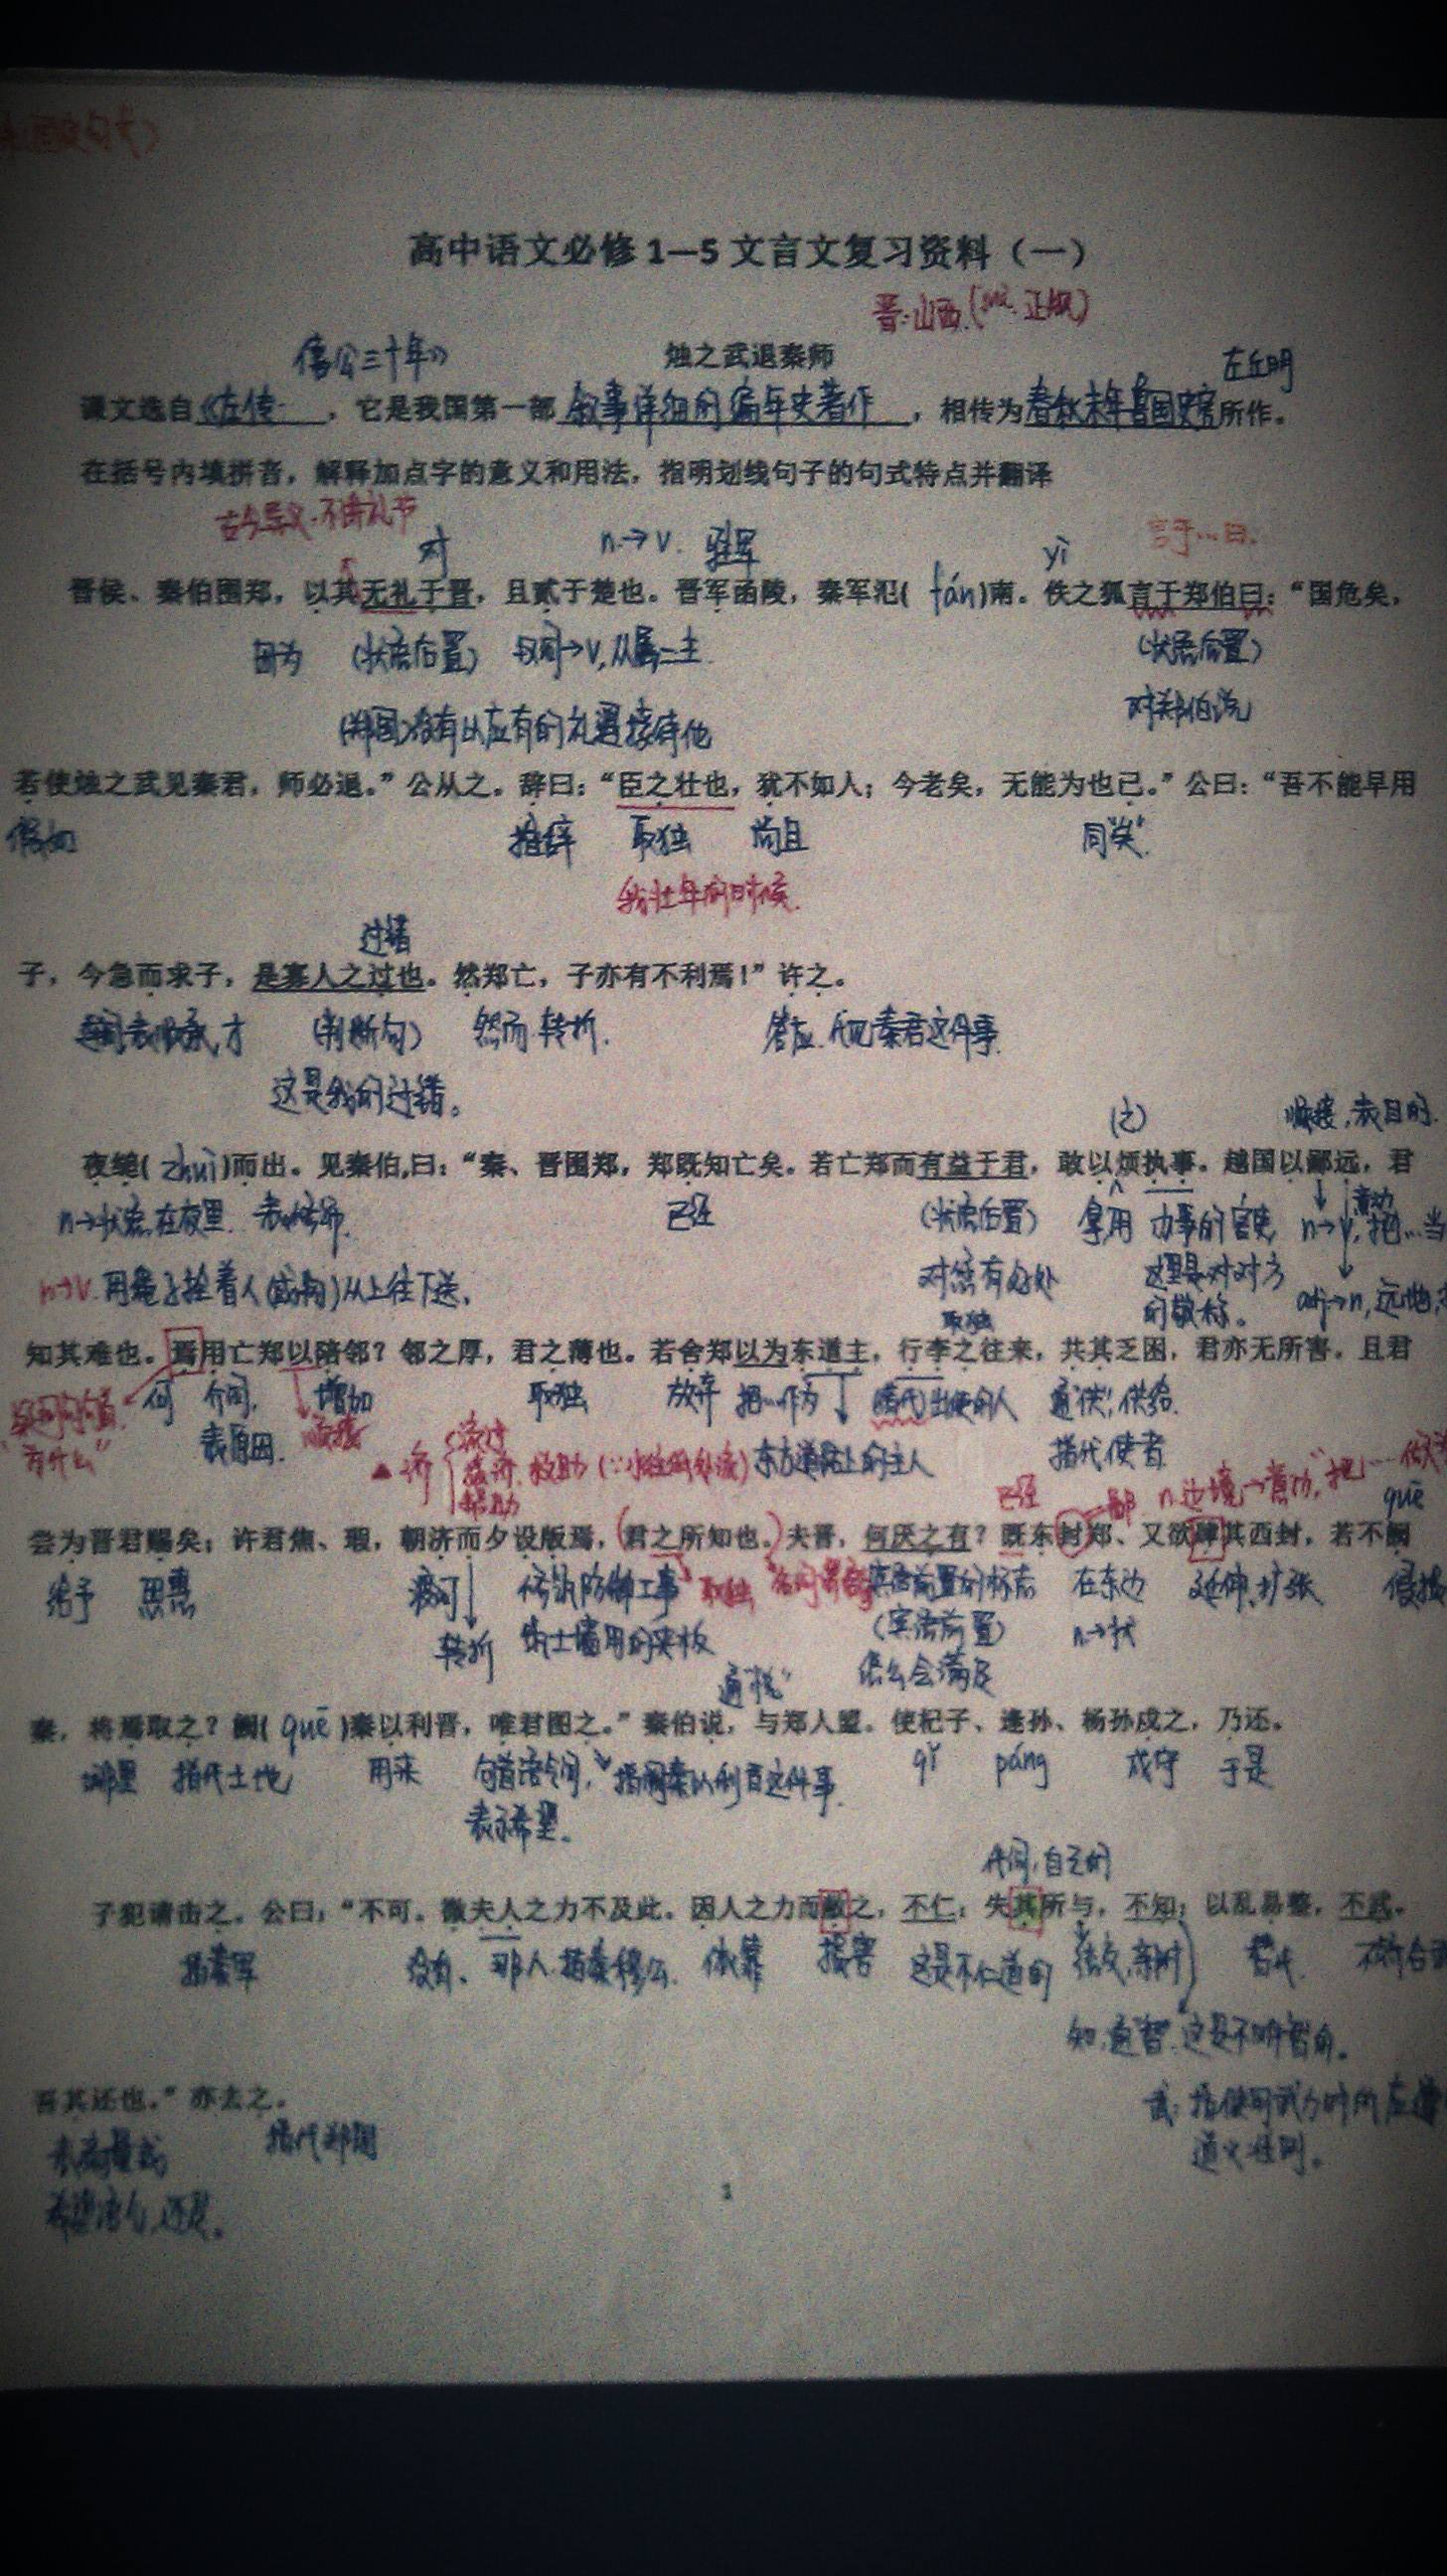 高中语文必修1—5文言文复习资料（一）
晋:山西.
僖公三十年》 烛之武退秦师 左丘明
课文选自《左传 ，它是我国第一部 叙事详细的编年史著作 ，相传为春秋末年鲁国史官所作。
在括号内填拼音，解释加点字的意义和用法，指明划线句子的句式特点并翻译
古今异义.不讲礼节
对 n.→v. 驻军 yì 言于…曰.
晋侯、秦伯围郑，以其无礼于晋，且贰于楚也。晋军函陵，秦军氾( fán)南。佚之狐言于郑伯曰：“国危矣，
因为 (状语后置) (状语后置)
(郑国)没有以应有的礼遇接待他 对郑伯说
若使烛之武见秦君，师必退。”公从之。辞曰：“臣之壮也，犹不如人；今老矣，无能为也已。”公曰：“吾不能早用
假如 推辞 取独 尚且 同“矣”.
我壮年的时候.
过错
子，今急而求子，是寡人之过也。然郑亡，子亦有不利焉！”许之。
(判断句) 然而.转折. 答应.
这是我的过错。
(之) 顺接,表目的.
夜缒( zhuì)而出。见秦伯,曰：“秦、晋围郑，郑既知亡矣。若亡郑而有益于君，敢以烦执事。越国以鄙远，君
n→状语.在夜里. 表修饰. 已经 (状语后置) 拿用 办事的官吏 n→v, 意动 把…当
n→v. 用绳子拴着人(或物)从上往下送。 对您有好处 这里是对对方 adj→n,远地,
取独 的敬称。
知其难也。焉用亡郑以陪邻？邻之厚，君之薄也。若舍郑以为东道主，行李之往来，共其乏困，君亦无所害。且君
何 介词. 增加 取独 放弃 把…作为 出使的人 通“供”,供给.
“为什么” 表原因. 东方道路上的主人 指代使者
已经 quē
尝为晋君赐矣；许君焦、瑕，朝济而夕设版焉，君之所知也。夫晋，何厌之有？既东封郑、又欲肆其西封，若不阙
给予 恩惠 渡河 取独 宾语前置的标志 在东边 延伸,扩张
转折 (宾语前置) n→状
通“悦” 怎么会满足
秦，将焉取之？阙( quē )秦以利晋，唯君图之。”秦伯说，与郑人盟。使杞子、逢孙、杨孙戍之，乃还。
哪里 指代土地 用来 句首语气词, 指阙秦以利晋这件事. qǐ páng 戍守 于是
表示希望。
代词,自己的
子犯请击之。公曰：“不可。微夫人之力不及此。因人之力而敝之，不仁；失其所与，不知；以乱易整，不武。
指秦军 没有、 那人.指秦穆公. 依靠 损害 这是不仁道的 结交,亲附 替代.
知,通“智”.这是不明智的。
吾其还也。”亦去之。
指代郑国 武：指使用武力时所应遵
道义准则。
1